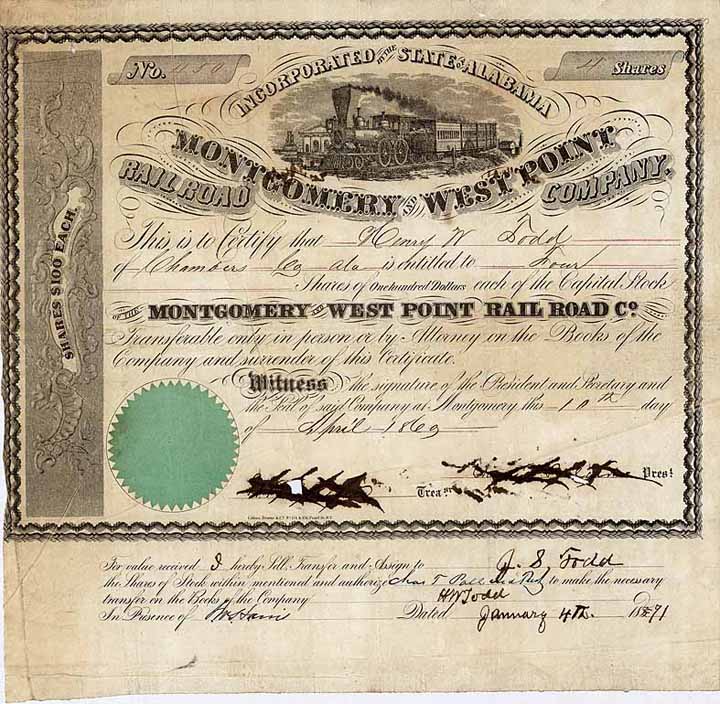 No. 4
Shares
INCORPORATED BY THE STATE OF ALABAMA
MONTGOMERY AND WEST POINT
RAIL ROAD COMPANY.
SHARES $100 EACH.
This is to Certify that Henry W Todd
of Chambers Co Ala is entitled to Four
Shares of One hundred Dollars each of the Capital Stock
OF THE MONTGOMERY AND WEST POINT RAIL ROAD Co.
Transferable only in person or by Attorney in the Books of the
Company and surrender of this Certificate.
Witness the signature of the President and Secretary and
the Seal of said Company at Montgomery this 10th day
of April 1869
Prest
Treas
For value received I hereby Sell Transfer and Assign to J. S. Todd
the Shares of Stock within mentioned and authorize Chas T to make the necessary
transfer on the Books of the Company H W Todd
In Presence of Dated January 4th. 1871